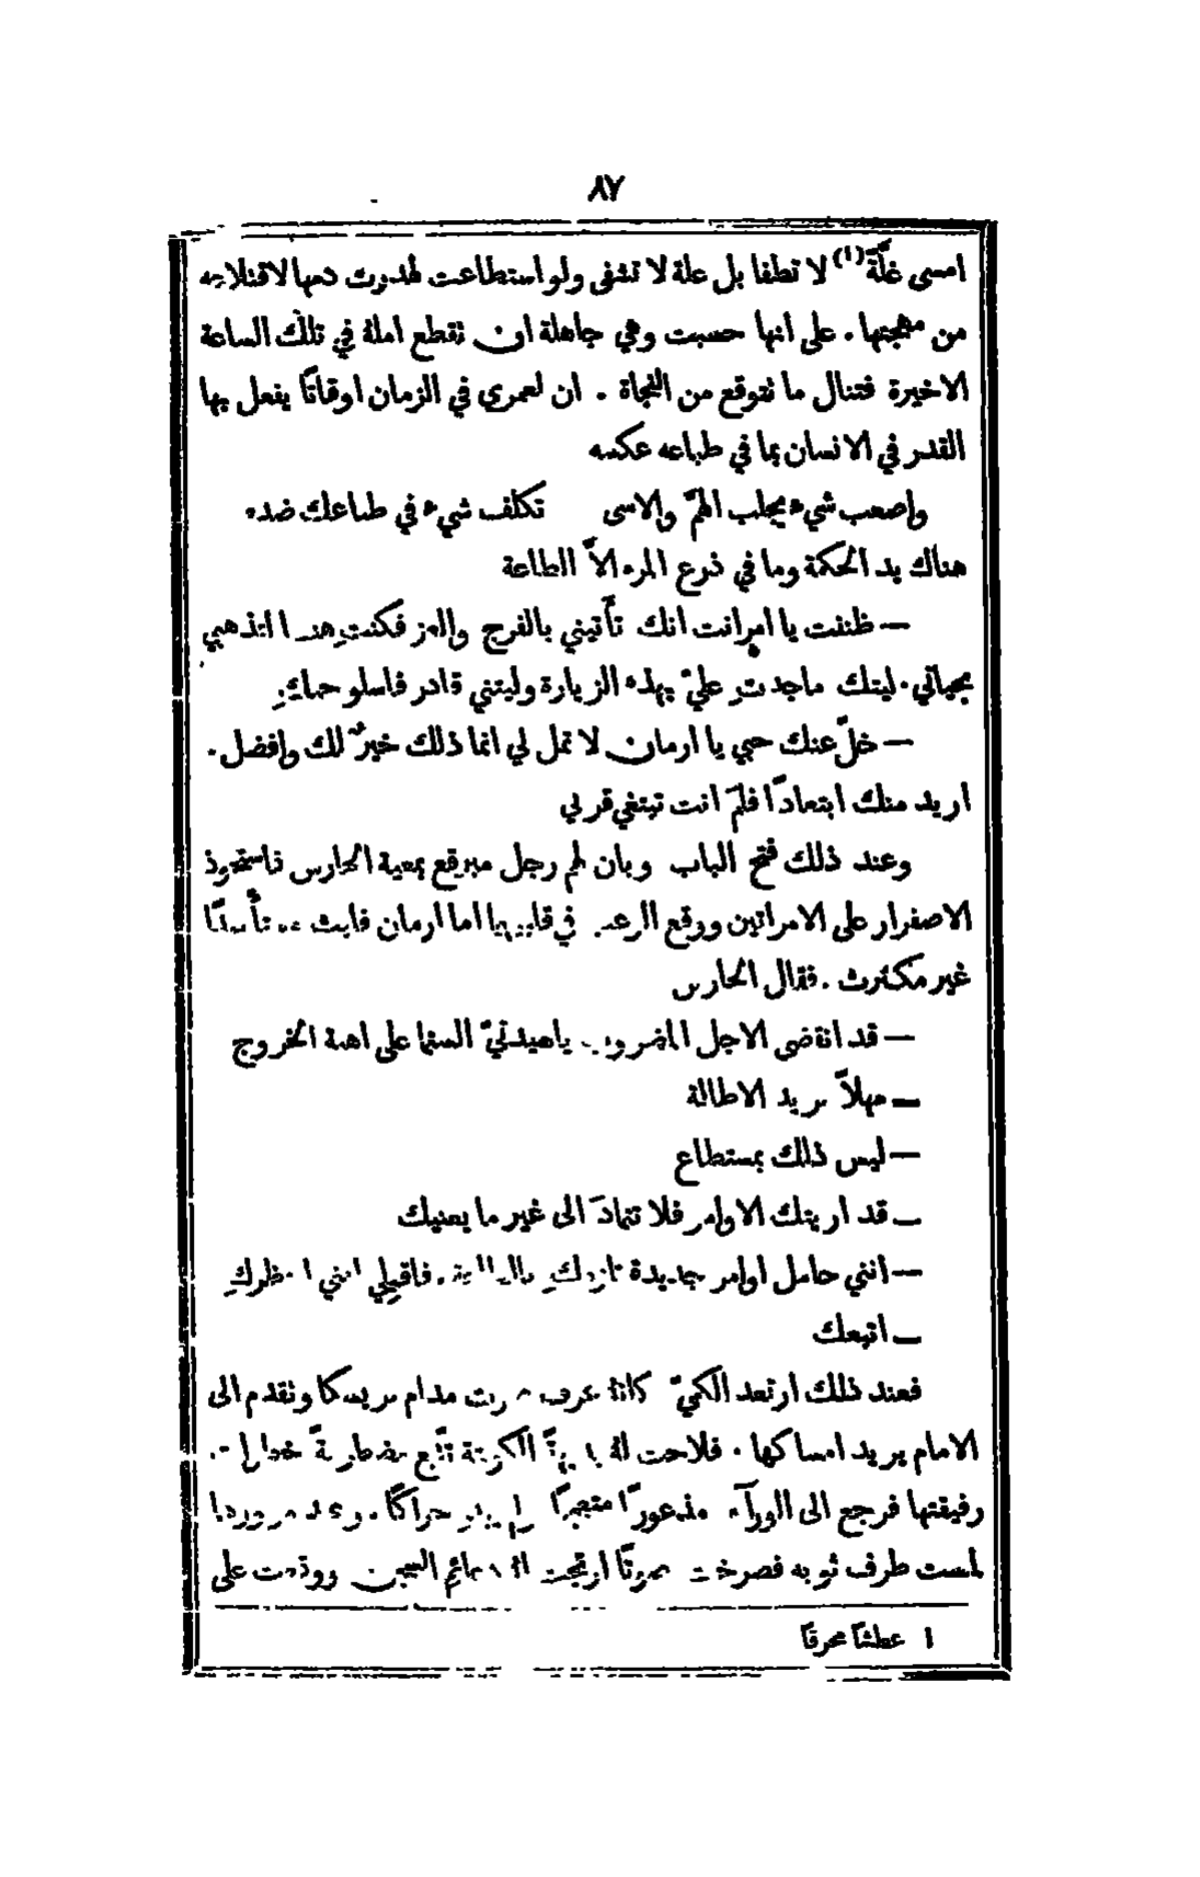 ٨٧
امسى غلَّةً (١) لا تطفا بل علة لا تشفى ولو استطاعت لهدرت دمها لاقتلاعه
من مهجتها. على انها حسبت وهي جاهلة ان نقطع املهُ في تلك الساعة
الاخيرة فتنال ما نتوقع من النجاة . ان لعمري في الزمان اوقاتًا يفعل بها
القدر في الانسان بما في طباعه عكسه
واصعب شيء يجلب الهمّ والاسى تكلف شيء في طباعك ضده
هناك يد الحكمة وما في ذرع المرء الاَّ الطاعة
— ظننت يا امرانت انك تأتيني بالفرج والعز فكنتِ هنا لتذهبي
بحياتي. ليتك ماجدتِ عليّ بهذه الزيارة وليتني قادر فاسلو حبكِ
— خلّ عنك حبي يا ارمان لا تمل لي انما ذلك خيرٌ لك وافضل.
اريد منك ابتعادًا فلمَ انت تبتغي قربي
وعند ذلك فتح الباب وبان لهم رجل مبرقع بمعية الحارس فاستحوذ
الاصفرار على الامراتين ووقع الرعب في قلبيهما اما ارمان فلبث
غير مكترث . فقال الحارس
— قد انقضى الاجل المضروب ياسيدتيّ الستما على اهبة الخروج
— مهلاً نريد الاطالة
— ليس ذلك بمستطاع
— قد اريتك الاوامر فلا تتمادَ الى غير ما يعنيك
— انني حامل اوامر جديدة فاقبلي انني انتظركِ
— اتبعك
فعند ذلك ارتعد الكميّ كانهُ عرف صوت مدام بريسكا ونقدم الى
الامام يريد امساكها . فلاحت لهُ الكونتة نتبع مضطربةً
رفيقتها فرجع الى الورآء مذعورًا متحيرًا لم يبد حراكًا. وعند مرورها
لمست طرف ثوبه فصرخت صوتًا ارتجت لهُ دعائم السجن ووقعت على
١ عطشًا محرقًا